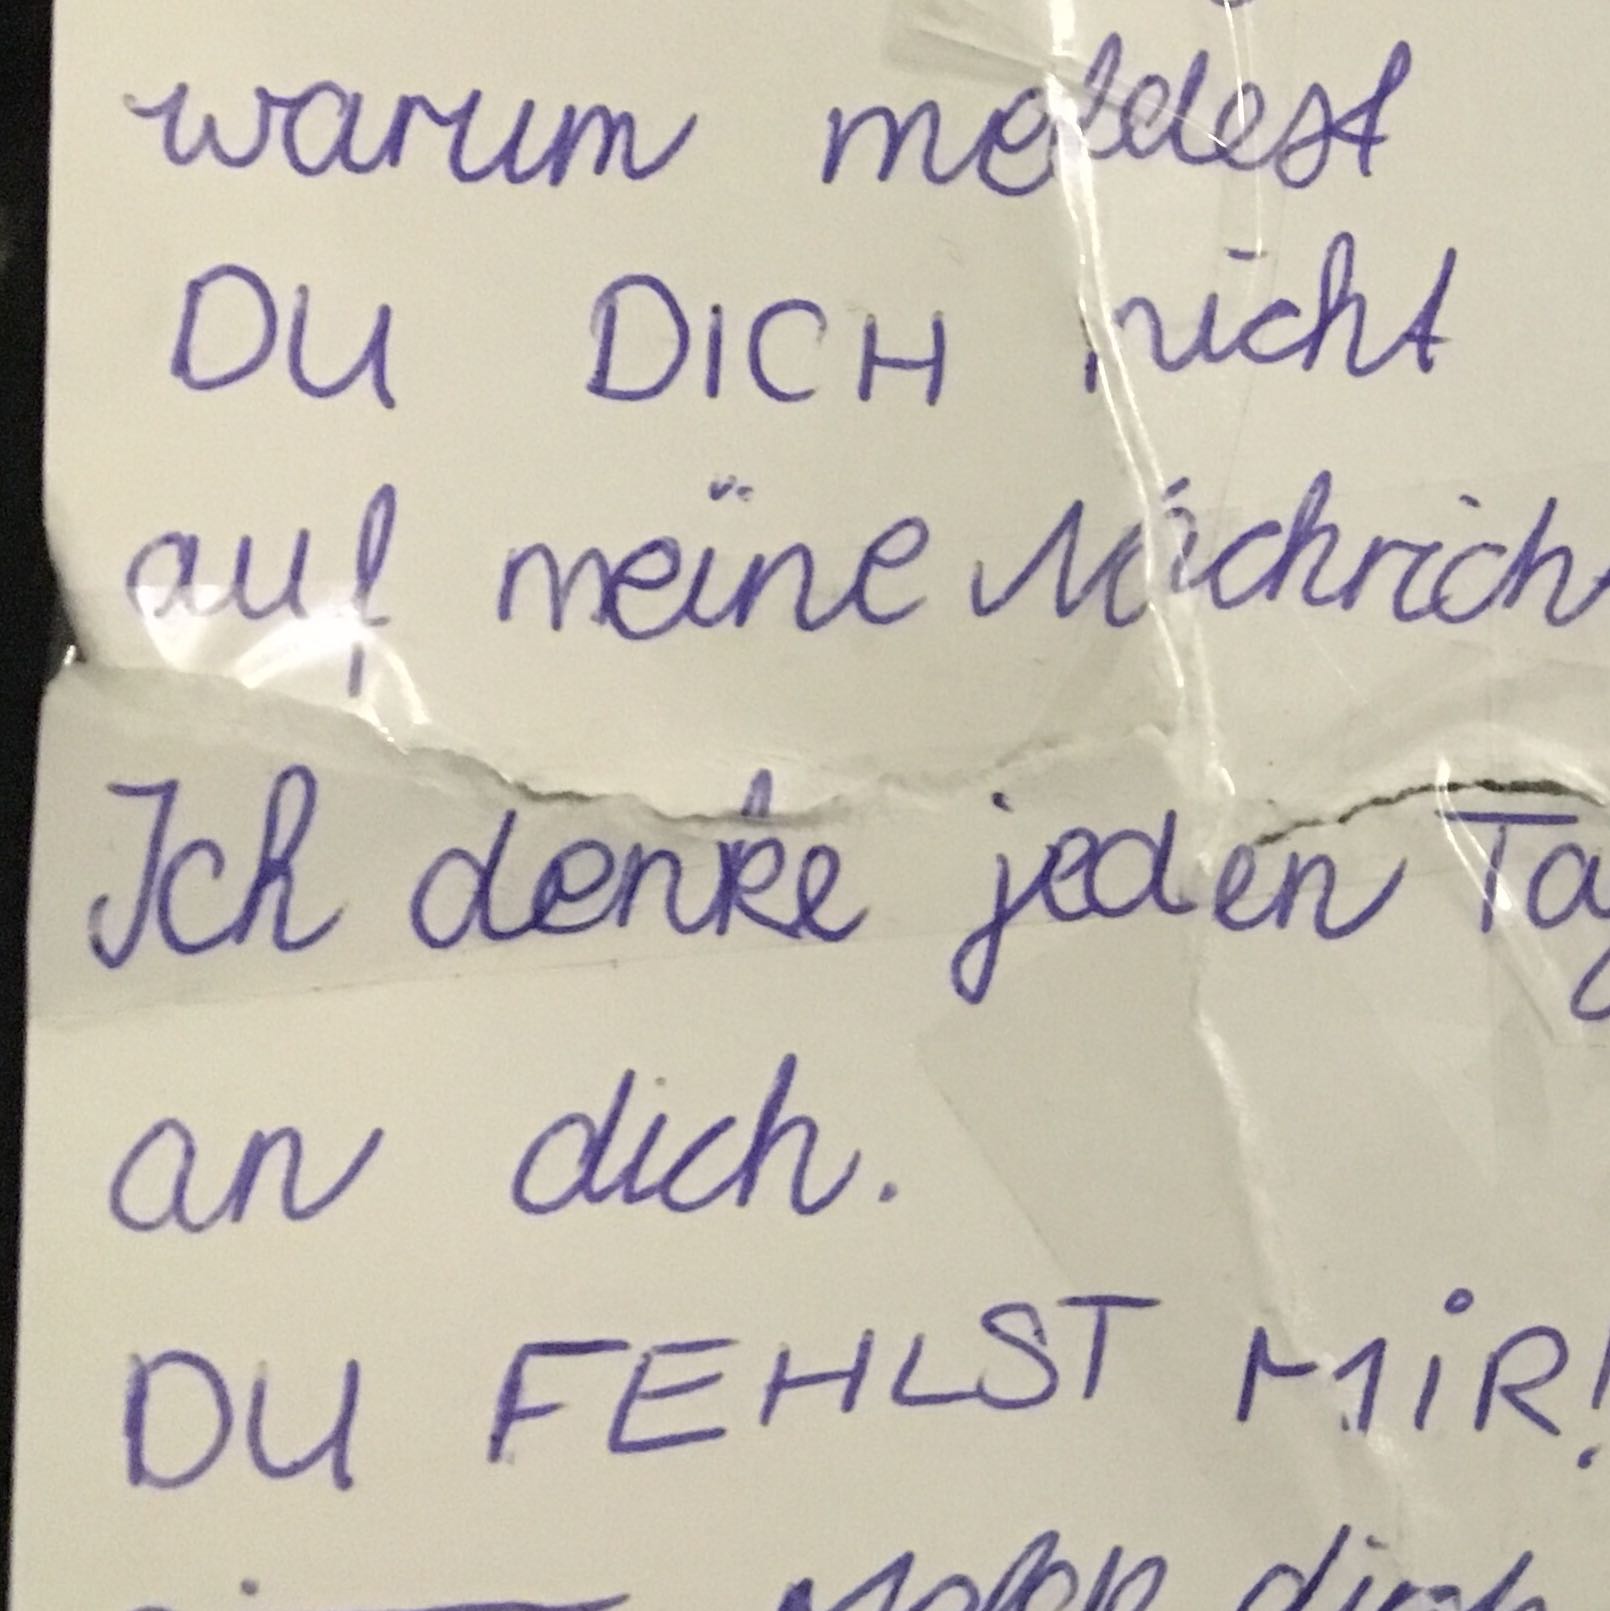 warum meldest
DU DICH nicht
auf meine Nachrich
Ich denke jeden Tag
an dich.
DU FEHLST MIR!